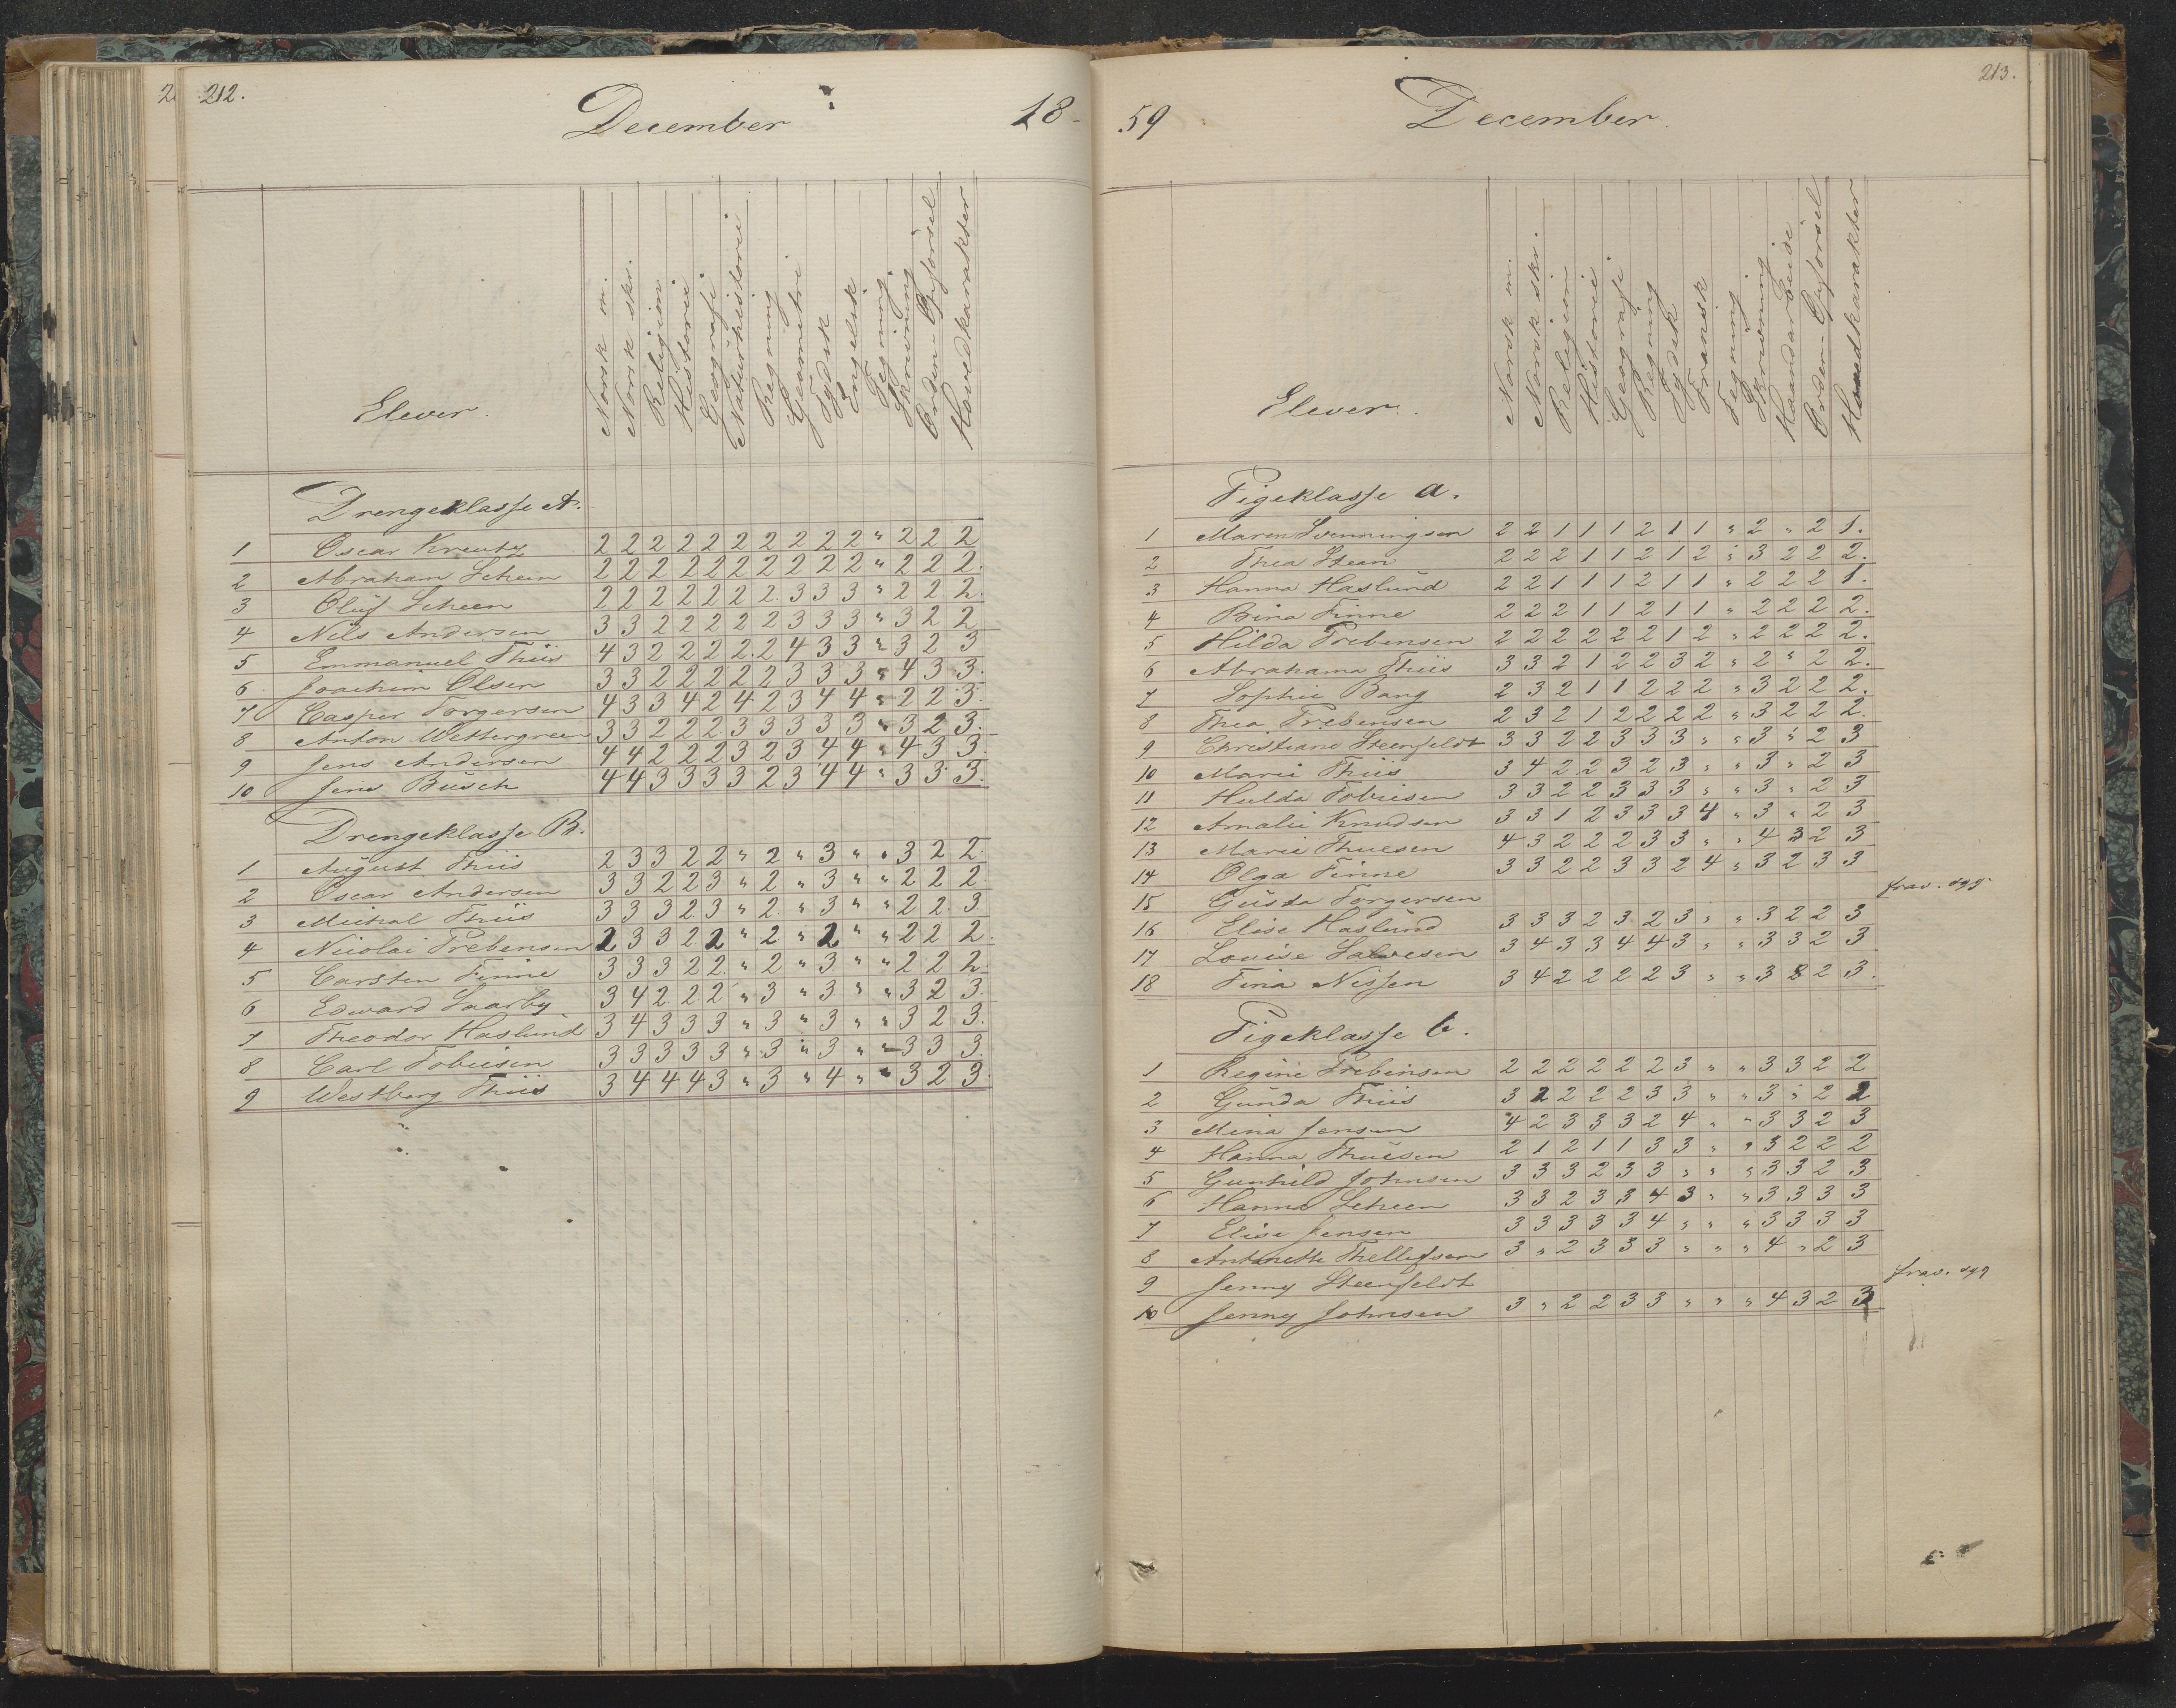 212.
December
18-
Elever.
Norsk m.
Norsk skr.
Religion
Historie
Geografi
Naturhistorie
Regning
Geometri
Tydsk
Engelsk
Tegning
Skrivning
Orden-Opförsel
Hovedkarakter
Drengeklasse A.
1 Oscar Kreutz 2 2 2 2 2 2 2 2 2 2 " 2 2 2
2 Abraham Scheen 2 2 2 2 2 2 2 2 2 2 " 2 2 2.
3 Oluf Scheen 2 2 2 2 2 2 2. 3 3 3 " 2 2 2.
4 Nils Andersen 3 3 2 2 2 2 2 3 3 3 " 3 2 2
5 Emmanuel Thiis 4 3 2 2 2 2. 2 4 3 3 " 3 2 3
6 Joachim Olsen 3 3 2 2 2 2 2 3 3 3 " 4 3 3.
7 Casper Torgersen 4 3 3 4 2 4 2 3 4 4 " 2 2 3.
8 Anton Wettergreen 3 3 2 2 2. 3 3 3 3 3 " 3 2 3.
9 Jens Andersen 4 4 2 2 2 3 2 3 4 4 " 4 3 3.
10 Jens Busch 4 4 3 3 3 3 2 3 4 4 " 3 3 3.
Drengeklasse B.
1 August Thiis 2 3 3 2 2 " 2 " 3 " " 3 2 2.
2 Oscar Andersen 3 3 2 2 3 " 2 " 3 " " 2 2 2.
3 Michal Thiis 3 3 3 2 3 " 2 " 3 " " 2 2 3
4 Nicolai Prebensen 2 3 3 2 2 " 2 " 2 " " 2 2 2.
5 Carsten Finne 3 3 3 2 2. " 2 " 3 " " 2 2 2.
6 Edward Saarby 3 4 2 2 2 " 3 " 3 " " 3 2 3.
7 Theodor Haslund 3 4 3 3 3 " 3 " 3 " " 3 2 3.
8 Carl Tobiesen 3 3 3 3 3 " 3 " 3 " " 3 3 3.
9 Westberg Thiis 3 4 4 4 3 " 3 " 4 " " 3 2 3.
213.
59
December.
Elever.
Norsk m.
Norsk skr.
Religion
Historie
Geografi
Regning
Tydsk
Fransk
Tegning
Skrivning
Haandarbeide
Orden-Opförsel
Hovedkarakter
Pigeklasse a.
1 Maren Svenningsen 2 2 1 1 1 2 1 1 " 2 " 2 1.
2 Thea Steen 2 2 2 1 1 2 1 2 " 3 2 2 2.
3 Hanna Haslund 2 2 1 1 1 2 1 1 " 2 2 2 1.
4 Bina Finne 2 2 2 1 1 2 1 1 " 2 2 2 2.
5 Hilda Prebensen 2 2 2 2 2 2 1 2 " 2 2 2 2.
6 Abrahama Thiis 3 3 2 1 2 2 3 2 " 2 " 2 2.
7 Sophie Bang 2 3 2 1 1 2 2 2 " 3 2 2 2.
8 Thea Prebensen 2 3 2 1 2 2 2 2 " 3 2 2 2.
9 Christiane Steenfeldt 3 3 2 2 3 3 3 " " 3 " 2 3
10 Marie Thiis 3 4 2 2 3 2 3 " " 3 " 2 3
11 Hulda Tobiesen 3 3 2 2 3 3 3 " " 3 " 2 3
12 Amalie Knudsen 3 3 1 2 3 3 3 4 " 3 " 2 3
13 Marie Thuesen 4 3 2 2 2 3 3 " " 4 3 2 3
14 Olga Finne 3 3 2 2 3 3 2 4 " 3 2 3 3
15 Gusta Torgersen frav. syg
16 Elise Haslund 3 3 3 2 3 2 3 " " 3 2 2 3
17 Louise Salvesen 3 4 3 3 4 4 3 " " 3 3 2 3
18 Fina Nissen 3 4 2 2 2 2 3 " " 3 2 3.
Pigeklasse b.
1 Regine Prebensen 2 2 2 2 2 2 3 " " 3 3 2 2
2 Gunda Thiis 3 2 2 2 2 3 3 " " 3 " 2 2
3 Mina Jensen 4 2 3 3 3 2 4 " " 3 3 2 3
4 Hanna Thuesen 2 1 2 1 1 3 3 " " 3 2 2 2
5 Gunhild Johnsen 3 3 3 2 3 3 " " " 3 3 2 3
6 Hanna Scheen 3 3 2 3 3 4 3 " " 3 3 3 3
7 Elise Jensen 3 3 3 3 3 4 " " " 3 3 3 3
8 Antonette Thellefsen 3 " 2 3 3 3 " " " 4 " 2 3
9 Jenny Steenfeldt frav. syg
10 Jenny Johnsen 3 " 2 2 3 3 " " " 4 3 2 3